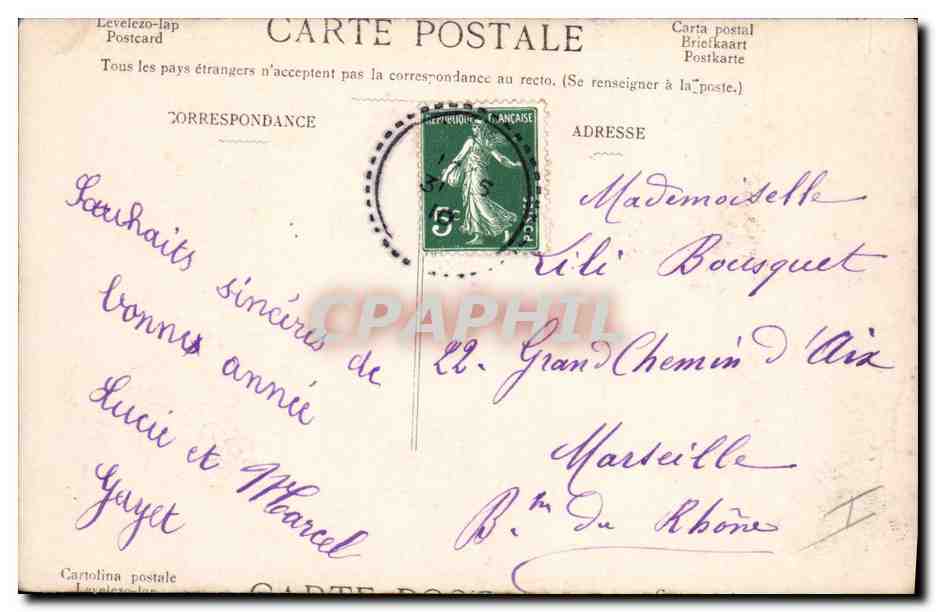 Levelezo-lap
Postcard
CARTE POSTALE
Carta postal
Briefkaart
Postkarte
Tous les pays étrangers n'acceptent pas la correspondance au recto. (Se renseigner à la poste.)
CORRESPONDANCE
ADRESSE
REPUBLIQUE FRANÇAISE
Souhaits sincères de
bonne année
Lucie et Marcel
Gayet
Mademoiselle
Lili Bousquet
22. Grand Chemin d'Aix
Marseille
B. du Rhône
CPAPHIL
Cartolina postale
Levelezo-lap